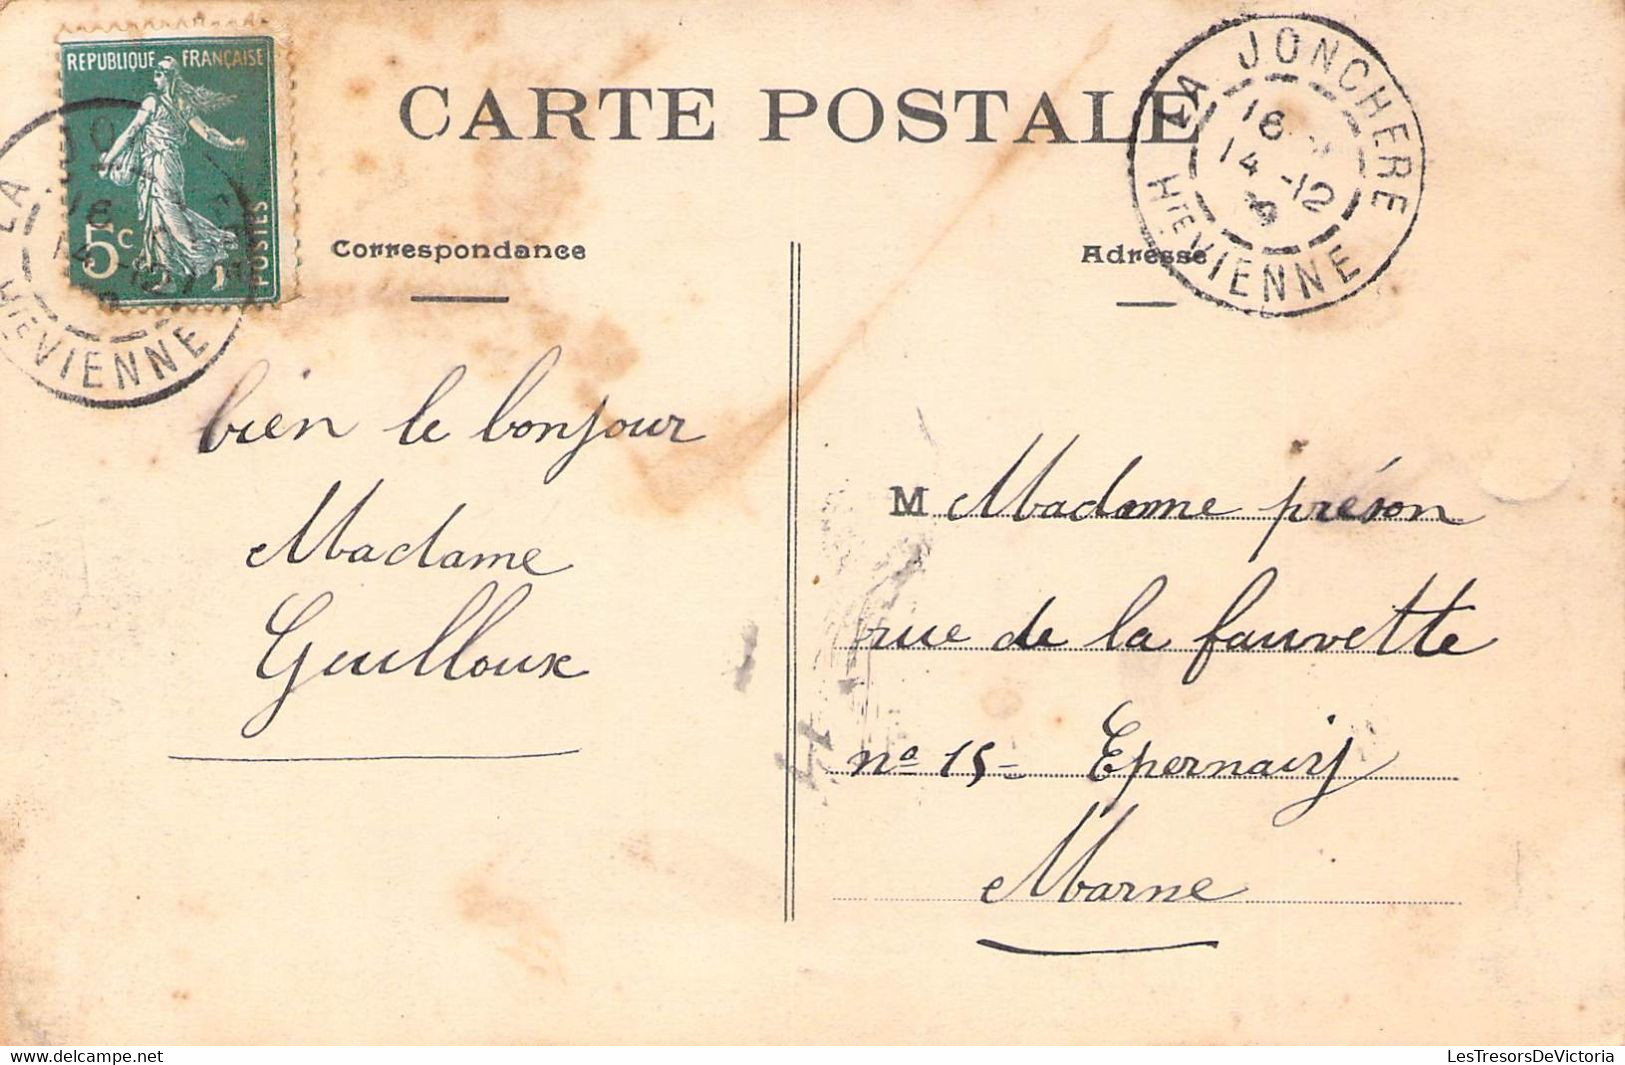 REPUBLIQUE FRANÇAISE
5c
POSTES
CARTE POSTALE
LA JONCHERE
16
14 -12
HTE VIENNE
Correspondance
Adresse
bien le bonjour
Madame
Guilloux
M Madame préson
rue de la fauvette
no 15 - Epernaiy
Marne
LesTresorsDeVictoria